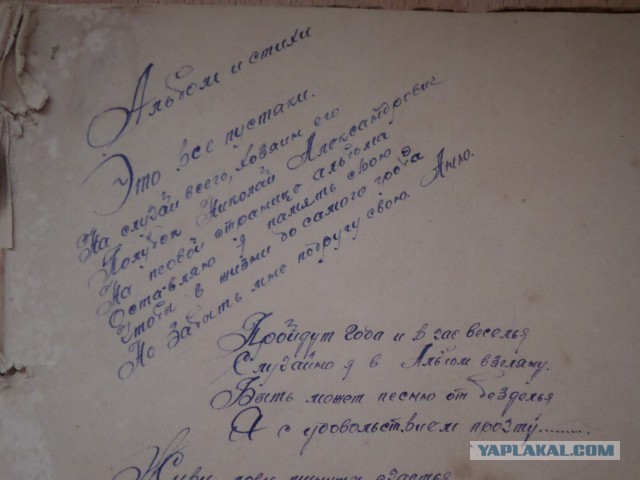 Альбом и стихи
Это все пустаки.
На случай всего, хозаин его
Голубок Николай Александрович
На первой странице альбома
Оставляю я память свою
Чтобы в жизни до самого гроба
Не забыть мне подругу свою. Анно.
Пройдут года и в час веселья
Случайно я в Альбом взгляну.
Быть может песню от безделья
Я с удовольствием прочту..........
Живи лови минуты счастья
YAPLAKAL.COM